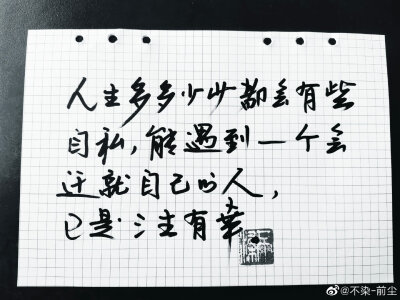 人生多多少少都会有些
自私,能遇到一个会
迁就自己的人,
已是三生有幸
@不染-前尘